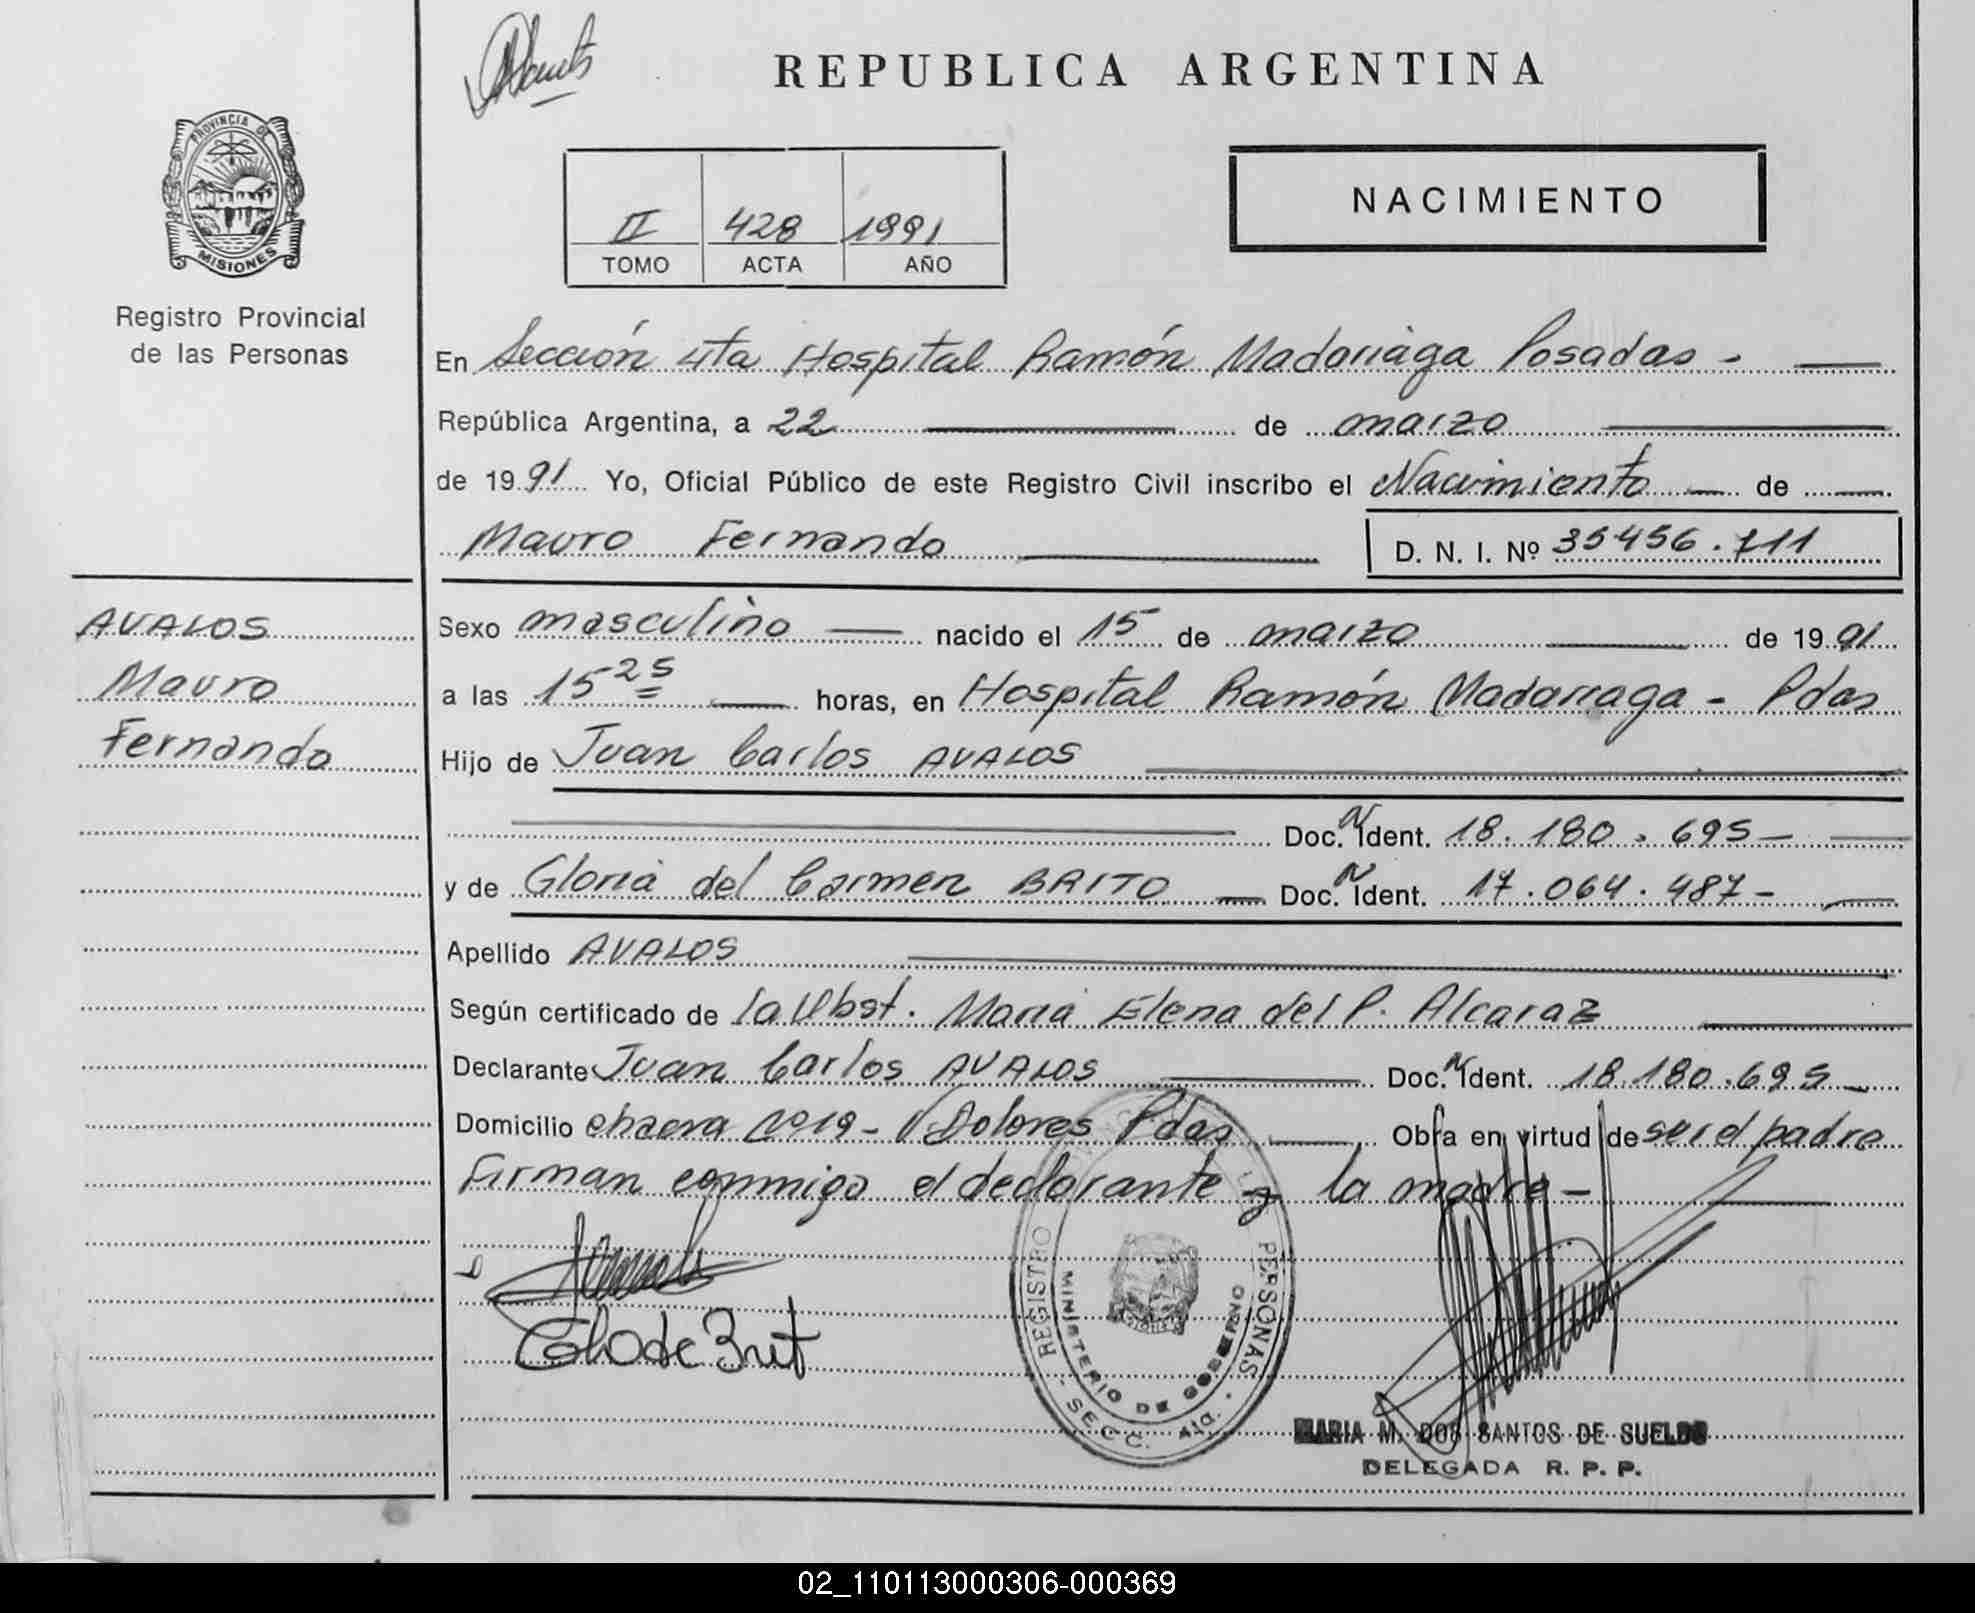 REPUBLICA ARGENTINA
PROVINCIA DE
MISIONES
Registro Provincial
de las Personas
II 428 1991
TOMO ACTA AÑO
NACIMIENTO
En Sección 4ta Hospital Ramón Madariaga Posadas -
República Argentina, a 22 de marzo
de 1991 Yo, Oficial Público de este Registro Civil inscribo el Nacimiento de
Mauro Fernando D. N. I. Nº 35456.711
AVALOS
Mauro
Fernando
Sexo masculino nacido el 15 de marzo de 1991
a las 15 25 horas, en Hospital Ramón Madariaga - Pdas
Hijo de Juan Carlos AVALOS
Doc. N Ident. 18.180.695 -
y de Gloria del Carmen BRITO Doc. N Ident. 17.064.487 -
Apellido AVALOS
Según certificado de la Obst. Maria Elena del P. Alcaraz
Declarante Juan Carlos AVALOS Doc. N Ident. 18.180.695
Domicilio chacra Nº 19 - V Dolores Pdas Obra en virtud de ser el padre
Firman conmigo el declarante y la madre -
REGISTRO PERSONAS
MINISTERIO DE GOBERNO
- SECC. 4ta. -
MARIA M. DOS SANTOS DE SUELDO
DELEGADA R. P. P.
02_110113000306-000369